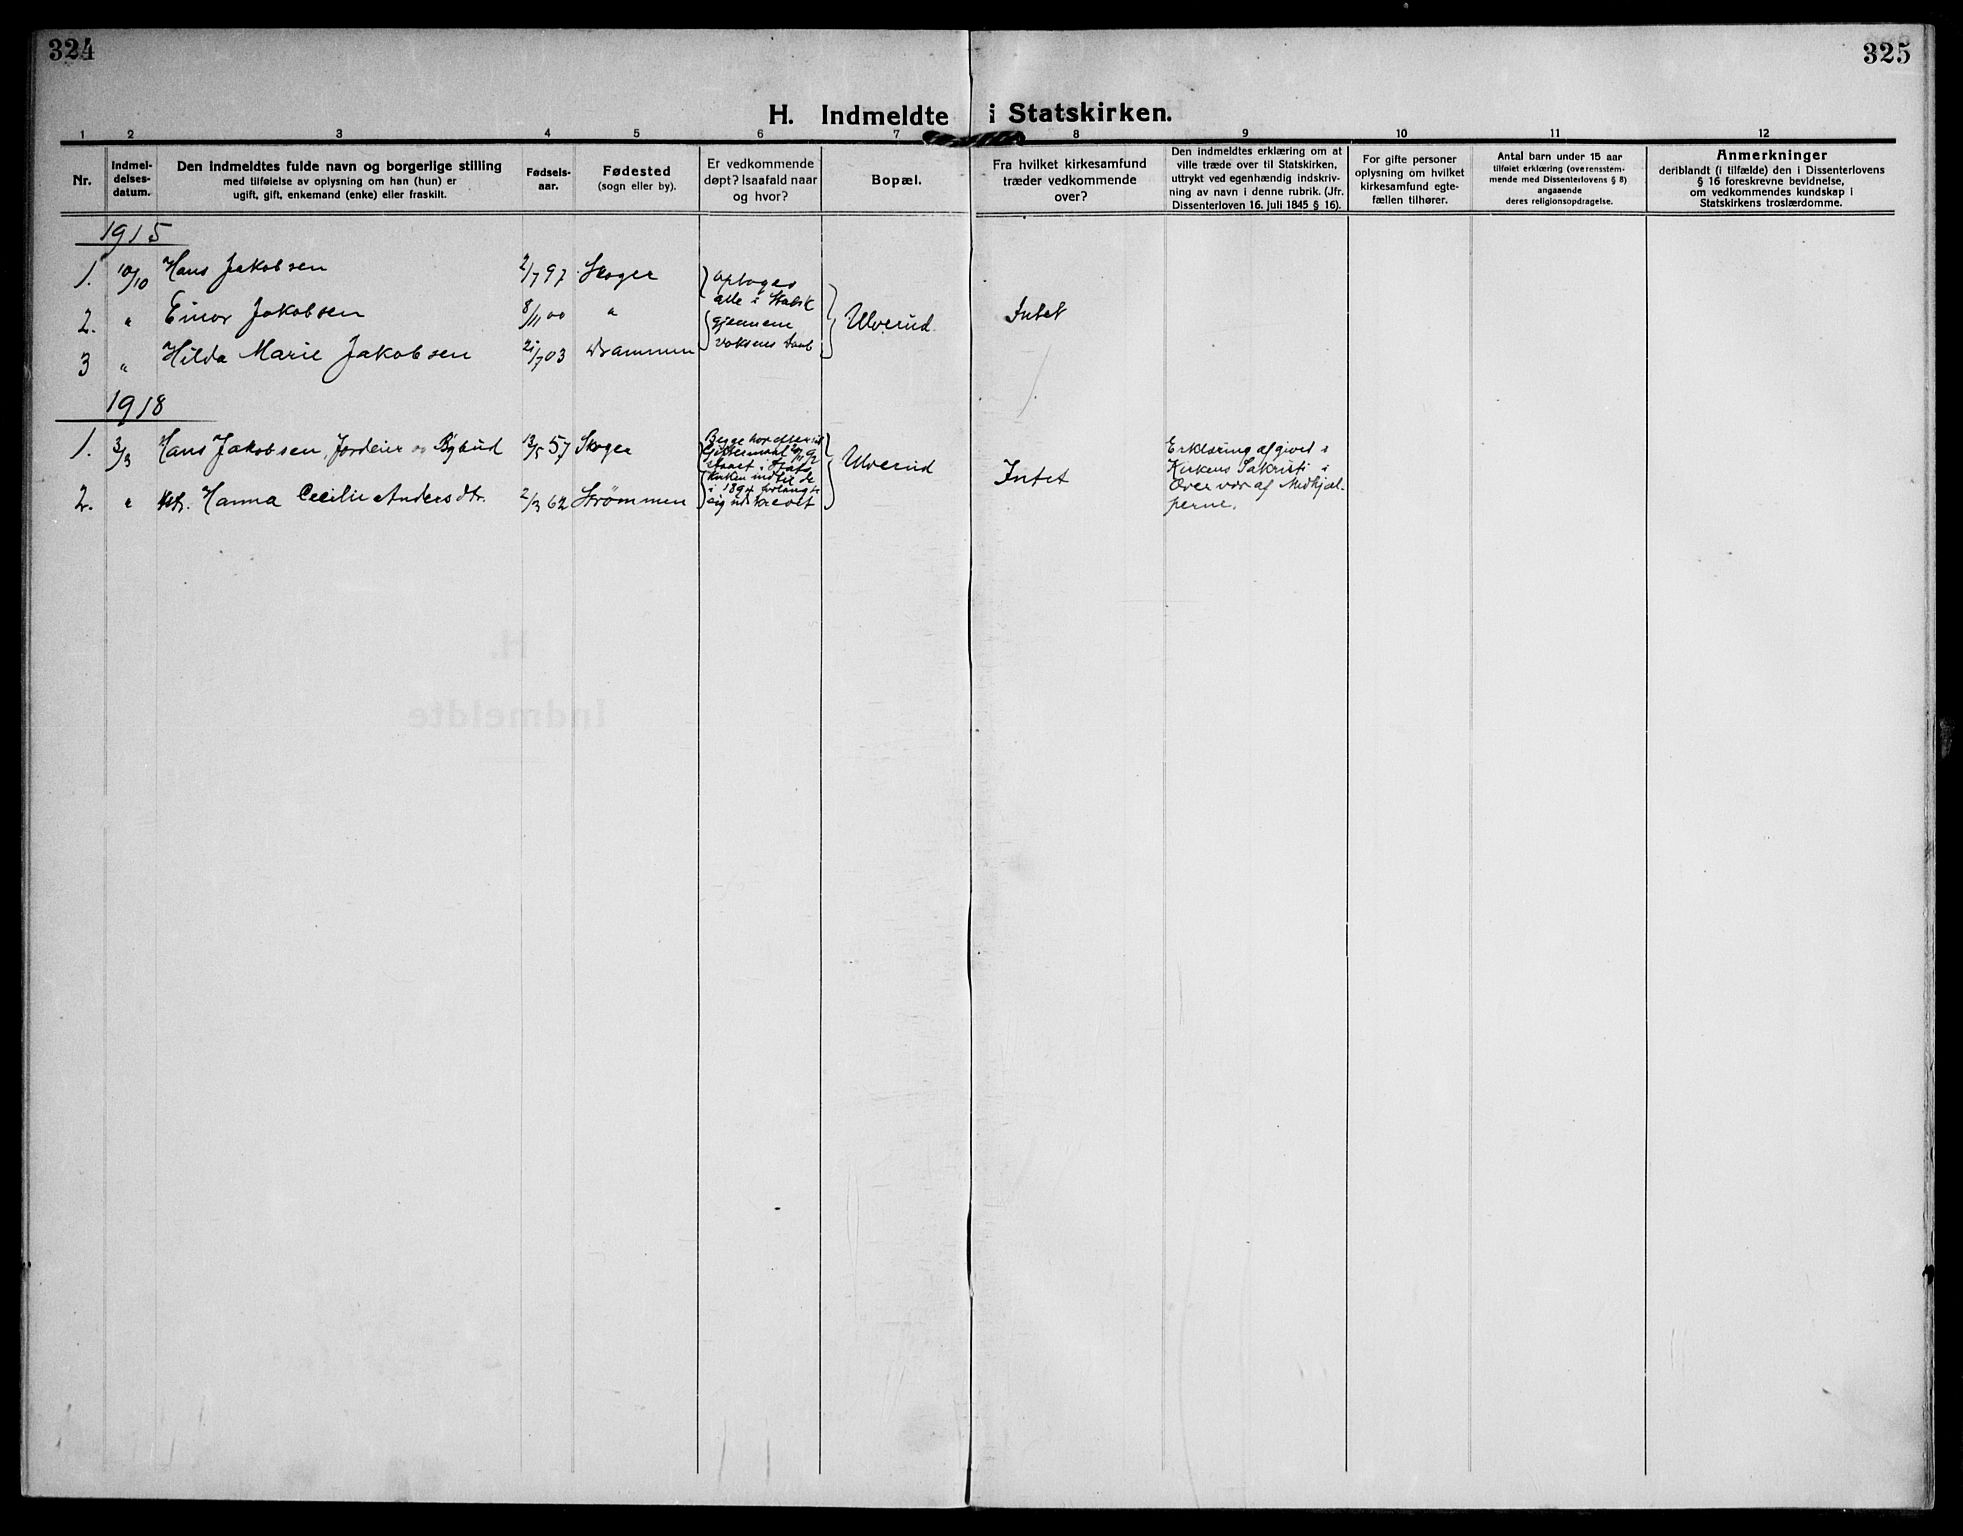 324
325
H. Indmeldte i Statskirken.
1 2 3 4 5 6 7 8 9 10 11 12
Nr.
Indmel-
delses-
datum.
Den indmeldtes fulde navn og borgerlige stilling
med tilføielse av oplysning om han (hun) er
ugift, gift, enkemand (enke) eller fraskilt.
Fødsels-
aar.
Fødested
(sogn eller by).
Er vedkommende
døpt? Isaafald naar
og hvor?
Bopæl.
Fra hvilket kirkesamfund
træder vedkommende
over?
Den indmeldtes erklæring om at
ville træde over til Statskirken,
uttrykt ved egenhændig indskriv-
ning av navn i denne rubrik. (Jfr.
Dissenterloven 16. juli 1845 § 16).
For gifte personer
oplysning om hvilket
kirkesamfund egte-
fællen tilhører.
Antal barn under 15 aar
tilføiet erklæring (overensstem-
mende med Dissenterlovens § 8)
angaaende
deres religionsopdragelse.
Anmerkninger
deriblandt (i tilfælde) den i Dissenterlovens
§ 16 foreskrevne bevidnelse,
om vedkommendes kundskap i
Statskirkens troslærdomme.
1915
1. 10/10 Hans Jakobsen 2/7 97 Skoger
2. " Einar Jakobsen 8/11 00 "
3 " Hilda Marie Jakobsen 21/7 03 Drammen
optoges
alle i Statsk
gjennem
voksens Daab
Ulverud
Intet
1918
1. 3/3 Hans Jakobsen, Jordeier og 13/5 57 Skoger
2. " Hanna Cecilie Andersdtr. 2/3 62 Strømmen
Begge har efter sit
Giftermaal
staaet i Stats
kirken indtil de
i 1894 forlangte
sig udskrevet
Ulverud
Intet
Erklæring afgived i
Kirkens Sakristi i
Overvær af Medhjæl-
perne.
H.
Indmeldte